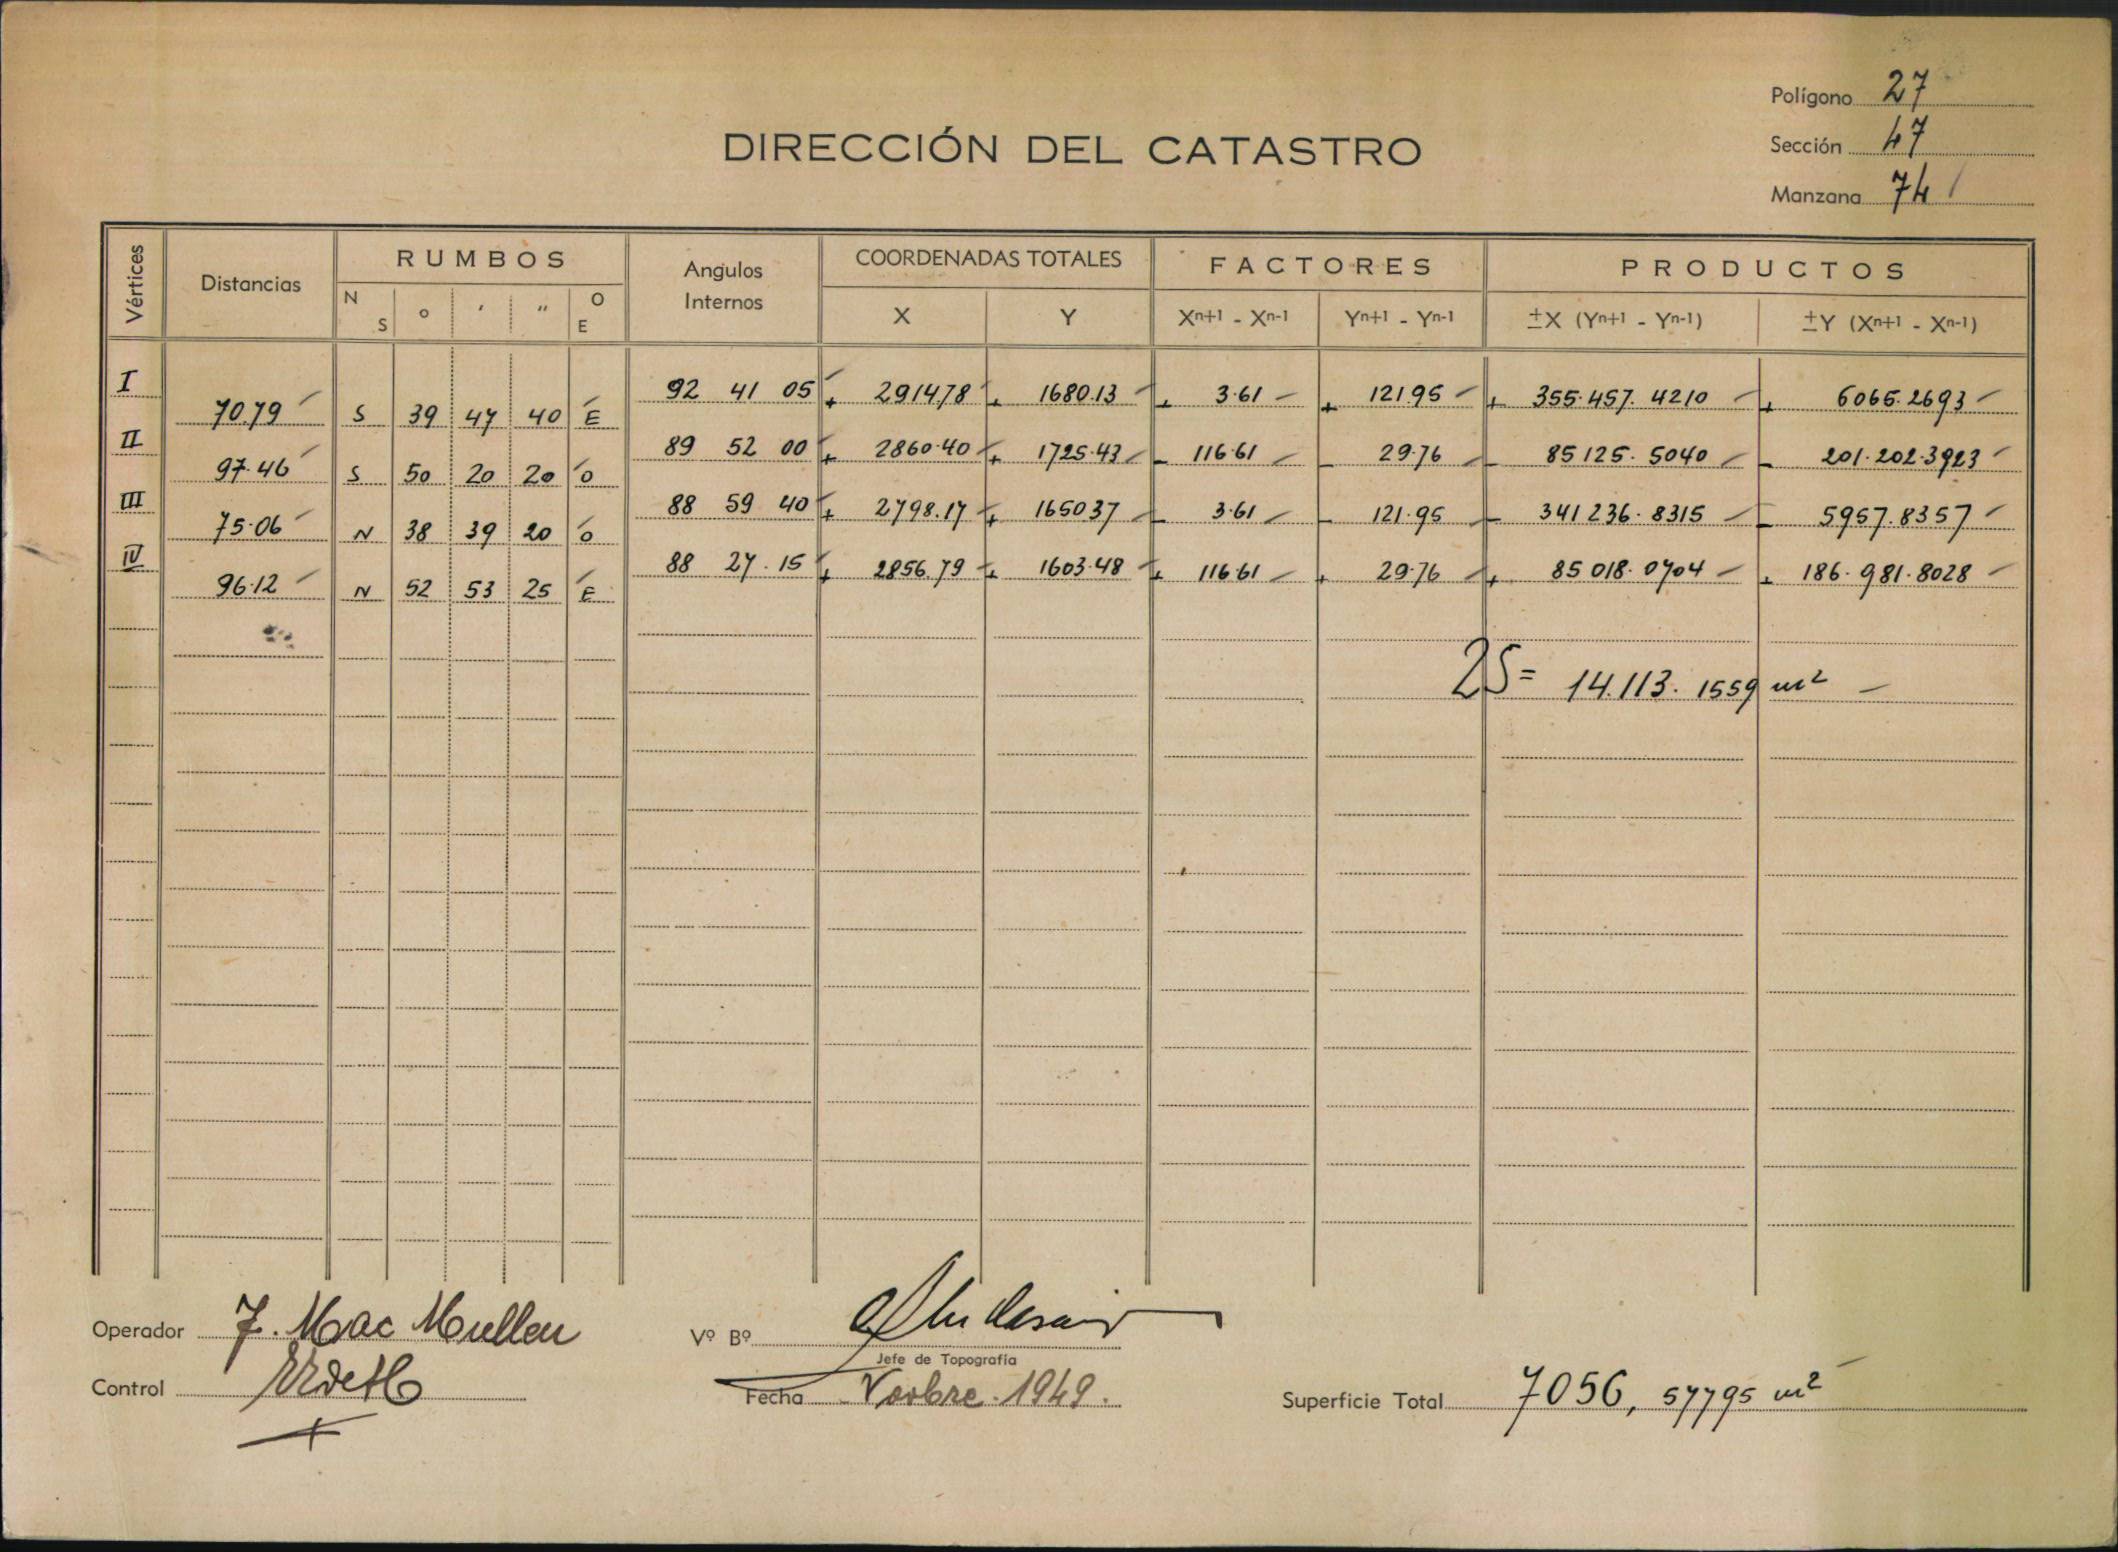 Polígono 27
DIRECCIÓN DEL CATASTRO
Sección 47
Manzana 74
Vértices Distancias RUMBOS Angulos Internos COORDENADAS TOTALES FACTORES PRODUCTOS
N S ° ' " O E X Y Xn+1 - Xn-1 Yn+1 - Yn-1 ±X (Yn+1 - Yn-1) ±Y (Xn+1 - Xn-1)
I 92 41 05 + 2914.78 + 1680.13 + 3.61 + 121.95 + 355.457.4210 + 6065.2693
70.79 S 39 47 40 E
II 89 52 00 + 2860.40 + 1725.43 - 116.61 - 29.76 - 85125.5040 - 201.202.3923
97.46 S 50 20 20 O
III 88 59 40 + 2798.17 + 1650.37 - 3.61 - 121.95 - 341236.8315 - 5957.8357
75.06 N 38 39 20 O
IV 88 27 15 + 2856.79 + 1603.48 + 116.61 + 29.76 + 85018.0704 + 186.981.8028
96.12 N 52 53 25 E
2S = 14.113.1559 m²
Operador J. Mac Mullen Vº Bº
Jefe de Topografía
Control Fecha Novbre. 1949.
Superficie Total 7056,57795 m²